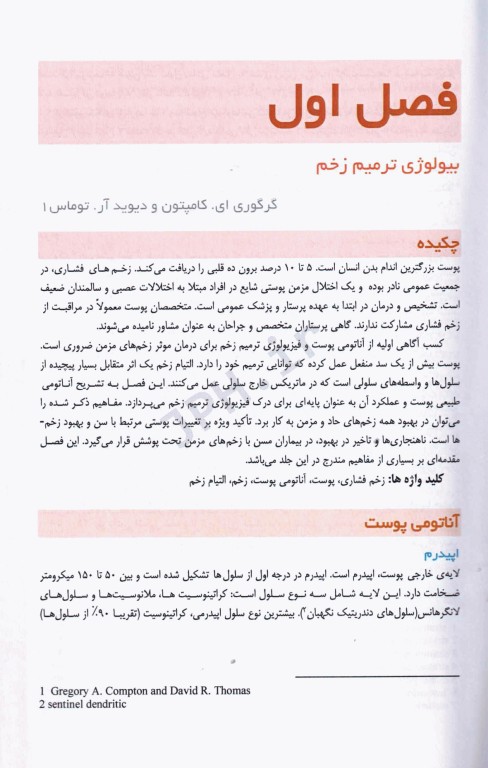 فصل اول
بیولوژی ترمیم زخم
گرگوری ای. کامپتون و دیوید آر. توماس۱
چکیده
پوست بزرگترین اندام بدن انسان است. ۵ تا ۱۰ درصد برون ده قلبی را دریافت می‌کند. زخم های فشاری، در
جمعیت عمومی نادر بوده و یک اختلال مزمن پوستی شایع در افراد مبتلا به اختلالات عصبی و سالمندان ضعیف
است. تشخیص و درمان در ابتدا به عهده پرستار و پزشک عمومی است. متخصصان پوست معمولاً در مراقبت از
زخم فشاری مشارکت ندارند. گاهی پرستاران متخصص و جراحان به عنوان مشاور نامیده می‌شوند.
کسب آگاهی اولیه از آناتومی پوست و فیزیولوژی ترمیم زخم برای درمان موثر زخم‌های مزمن ضروری است.
پوست بیش از یک سد منفعل عمل کرده که توانایی ترمیم خود را دارد. التیام زخم یک اثر متقابل بسیار پیچیده از
سلول‌ها و واسطه‌های سلولی است که در ماتریکس خارج سلولی عمل می‌کنند. این فصل به تشریح آناتومی
طبیعی پوست و عملکرد آن به عنوان پایه‌ای برای درک فیزیولوژی ترمیم زخم می‌پردازد. مفاهیم ذکر شده را
می‌توان در بهبود همه زخم‌های حاد و مزمن به کار برد. تأکید ویژه بر تغییرات پوستی مرتبط با سن و بهبود زخم-
ها است. ناهنجاری‌ها و تاخیر در بهبود، در بیماران مسن با زخم‌های مزمن تحت پوشش قرار می‌گیرد. این فصل
مقدمه‌ای بر بسیاری از مفاهیم مندرج در این جلد می‌باشد.
کلید واژه ها: زخم فشاری، پوست، آناتومی پوست، زخم، التیام زخم
آناتومی پوست
اپیدرم
لایه‌ی خارجی پوست، اپیدرم است. اپیدرم در درجه اول از سلول‌ها تشکیل شده است و بین ۵۰ تا ۱۵۰ میکرومتر
ضخامت دارد. این لایه شامل سه نوع سلول است: کراتینوسیت ها، ملانوسیت‌ها و سلول‌های
لانگرهانس(سلول‌های دندریتیک نگهبان۲). بیشترین نوع سلول اپیدرمی، کراتینوسیت (تقریبا ۹۰٪ از سلول‌ها)
1 Gregory A. Compton and David R. Thomas
2 sentinel dendritic